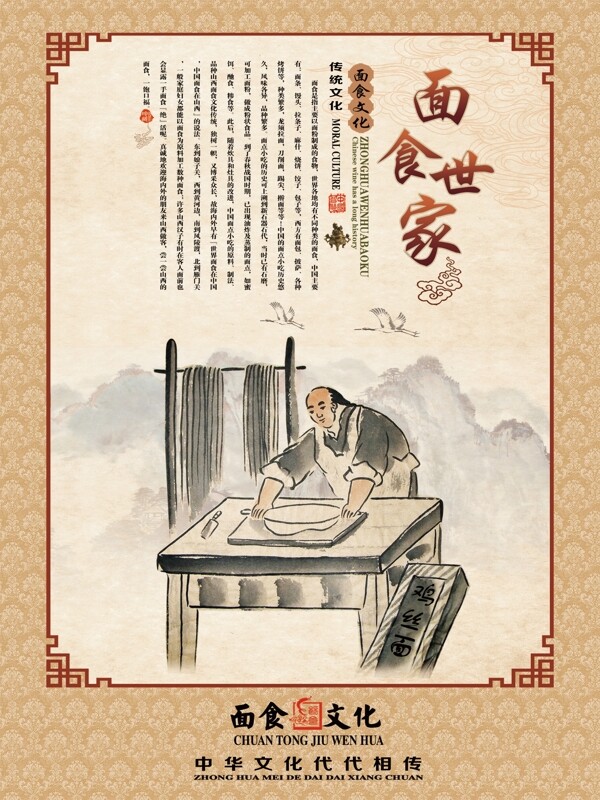 面食世家
面食文化
ZHONGHUAWENHUABAOKU
Chinese wine has a long history
传统文化 MORAL CULTURE
面食是指主要以面粉制成的食物，世界各地均有不同种类的面食，中国主要
有：面条、馒头、拉条子、麻什、烧饼、饺子、包子等，西方有面包、披萨、各种
烤饼等。种类繁多，龙须拉面、刀削面、踢尖、擀面等等！中国的面点小吃历史悠
久，风味各异，品种繁多。面点小吃的历史可上溯到新石器石代，当时已有石磨，
可加工面粉，做成粉状食品。到了春秋战国时期，已出现油炸及蒸制的面点，如蜜
饵、酏食、糁食等。此后，随着炊具和灶具的改进，中国面点小吃的原料、制法、
品种山西面食文化传统，独树一帜，又博采众长，故海内外早有「世界面食在中国
，中国面食在山西」的说法。东到娘子关，西到黄河边，南到风陵渡，北到雁门关
，一般家庭妇女都能以面食为原料加工数种面食，许多山西汉子有时在客人面前也
会显露一手面食「绝」活呢。真诚地欢迎海内外的朋友来山西做客，尝一尝山西的
面食，一饱口福
面食文化
CHUAN TONG JIU WEN HUA
中华文化代代相传
ZHONG HUA MEI DE DAI DAI XIANG CHUAN